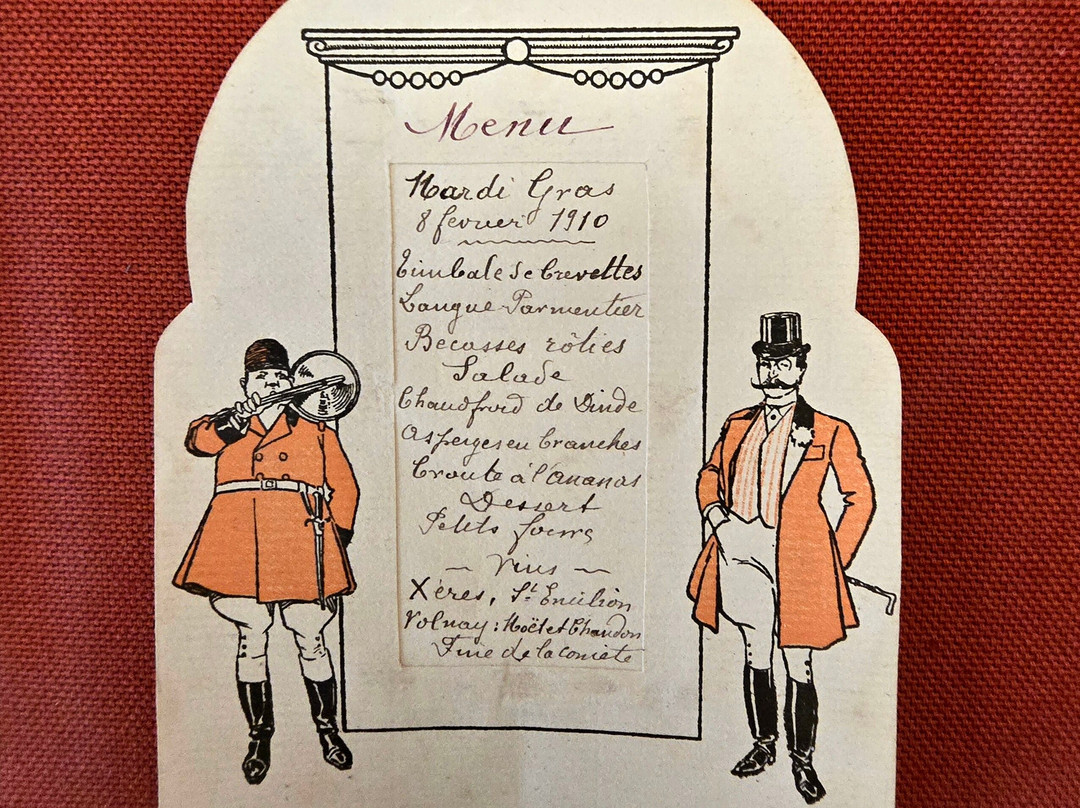 Menu
Mardi Gras
8 fevrier 1910
Timbale de Crevettes
Langue Parmentier
Becasses rôties
Salade
Chaudfroid de Dinde
Asperges en branches
Croute à l'ananas
Dessert
Petits fours
Vins
Xérès, St Emilion
Volnay : Moët et Chandon
Fine de la comète